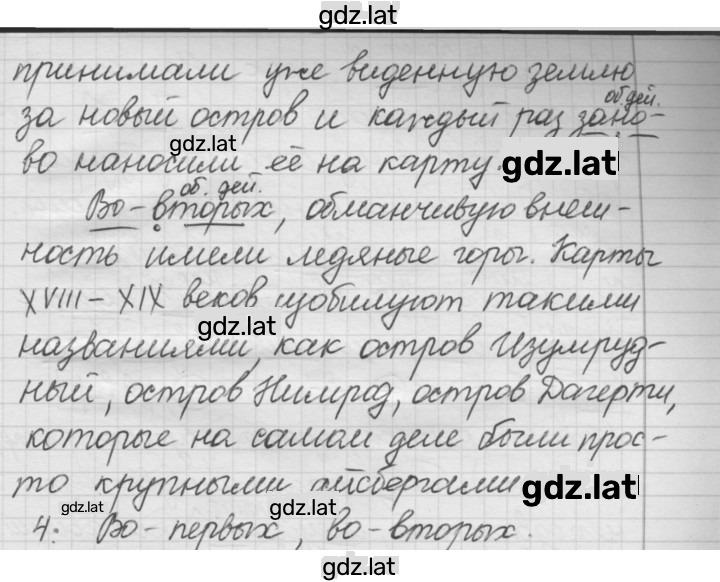 gdz.lat
принимали уже виденную землю
об. дей.
за новый остров и каждый раз зано-
gdz.lat
во наносили её на карту.
gdz.lat
об. дей.
Во-вторых, обманчивую внеш-
ность имели ледяные горы. Карты
XVIII-XIX веков изобилуют такими
gdz.lat
названиями, как остров Изумруд-
ный, остров Нимрод, остров Дагерти,
которые на самом деле были прос-
то крупными айсбергами
gdz.lat
gdz.lat
gdz.lat
4: Во-первых, во-вторых.
gdz.lat